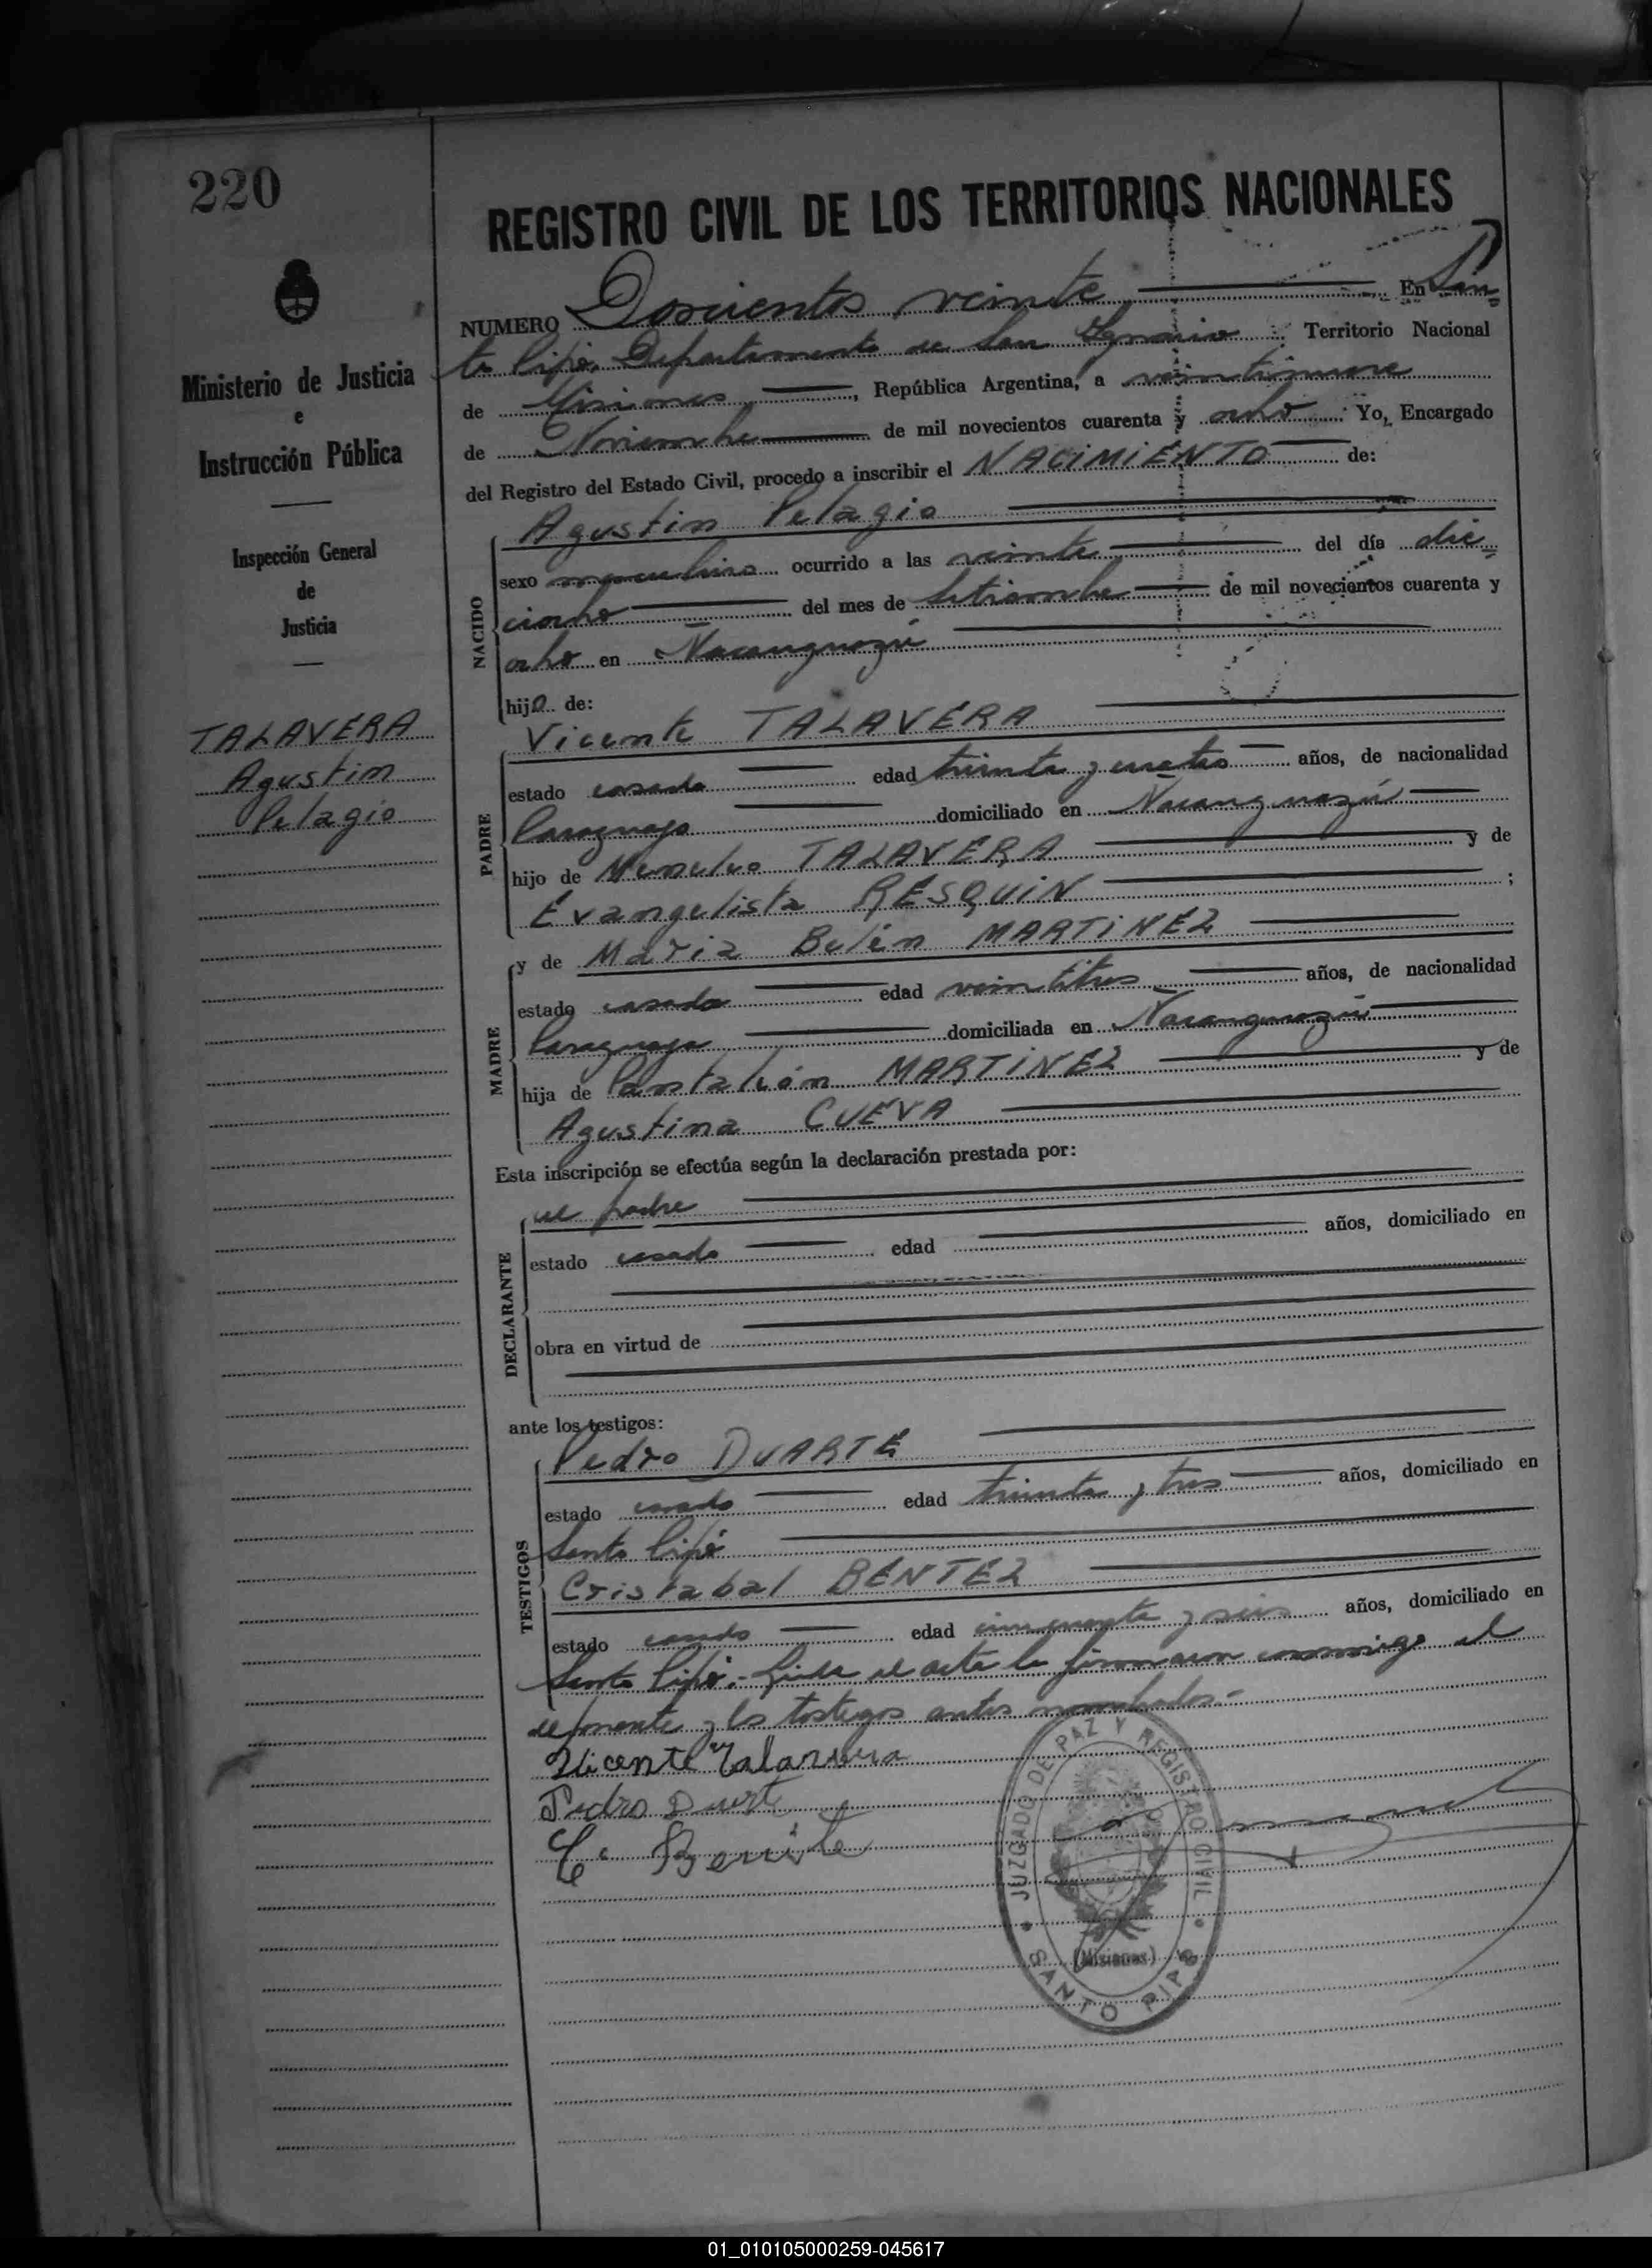 220
REGISTRO CIVIL DE LOS TERRITORIOS NACIONALES
NUMERO Doscientos veinte En San=
to Pipó, Departamento de San Ignacio Territorio Nacional
de Misiones, República Argentina, a veintinueve
de Noviembre de mil novecientos cuarenta y ocho Yo, Encargado
del Registro del Estado Civil, procedo a inscribir el NACIMIENTO de:
Ministerio de Justicia
e
Instrucción Pública
Inspección General
de
Justicia
TALAVERA
Agustin
Pelagio
NACIDO
Agustin Pelagio
sexo masculino ocurrido a las veinte del día die=
ciocho del mes de setiembre de mil novecientos cuarenta y
ocho en Ñacanguazú
hijo de:
PADRE
Vicente TALAVERA
estado casado edad treinta y cuatro años, de nacionalidad
Paraguayo domiciliado en Ñacanguazú
hijo de TALAVERA y de
Evangelista RESQUIN ;
MADRE
y de Maria Belén MARTINEZ
estado casada edad veintitres años, de nacionalidad
Paraguaya domiciliada en Ñacanguazú
hija de Pantaleón MARTINEZ y de
Agustina CUEVA
Esta inscripción se efectúa según la declaración prestada por:
DECLARANTE
el padre
estado casado edad años, domiciliado en
obra en virtud de
ante los testigos:
TESTIGOS
Pedro DUARTE
estado casado edad treinta y tres años, domiciliado en
Santo Pipó
Cristabal BENTEZ
estado casado edad cincuenta y seis años, domiciliado en
Santo Pipó. Leída el acta la firmaron conmigo el
deponente y los testigos antes nombrados.-
Vicente Talavera
Pedro Duarte
C.
JUZGADO DE PAZ Y REGISTRO CIVIL
(Misiones)
SANTO PIPO
01_010105000259-045617